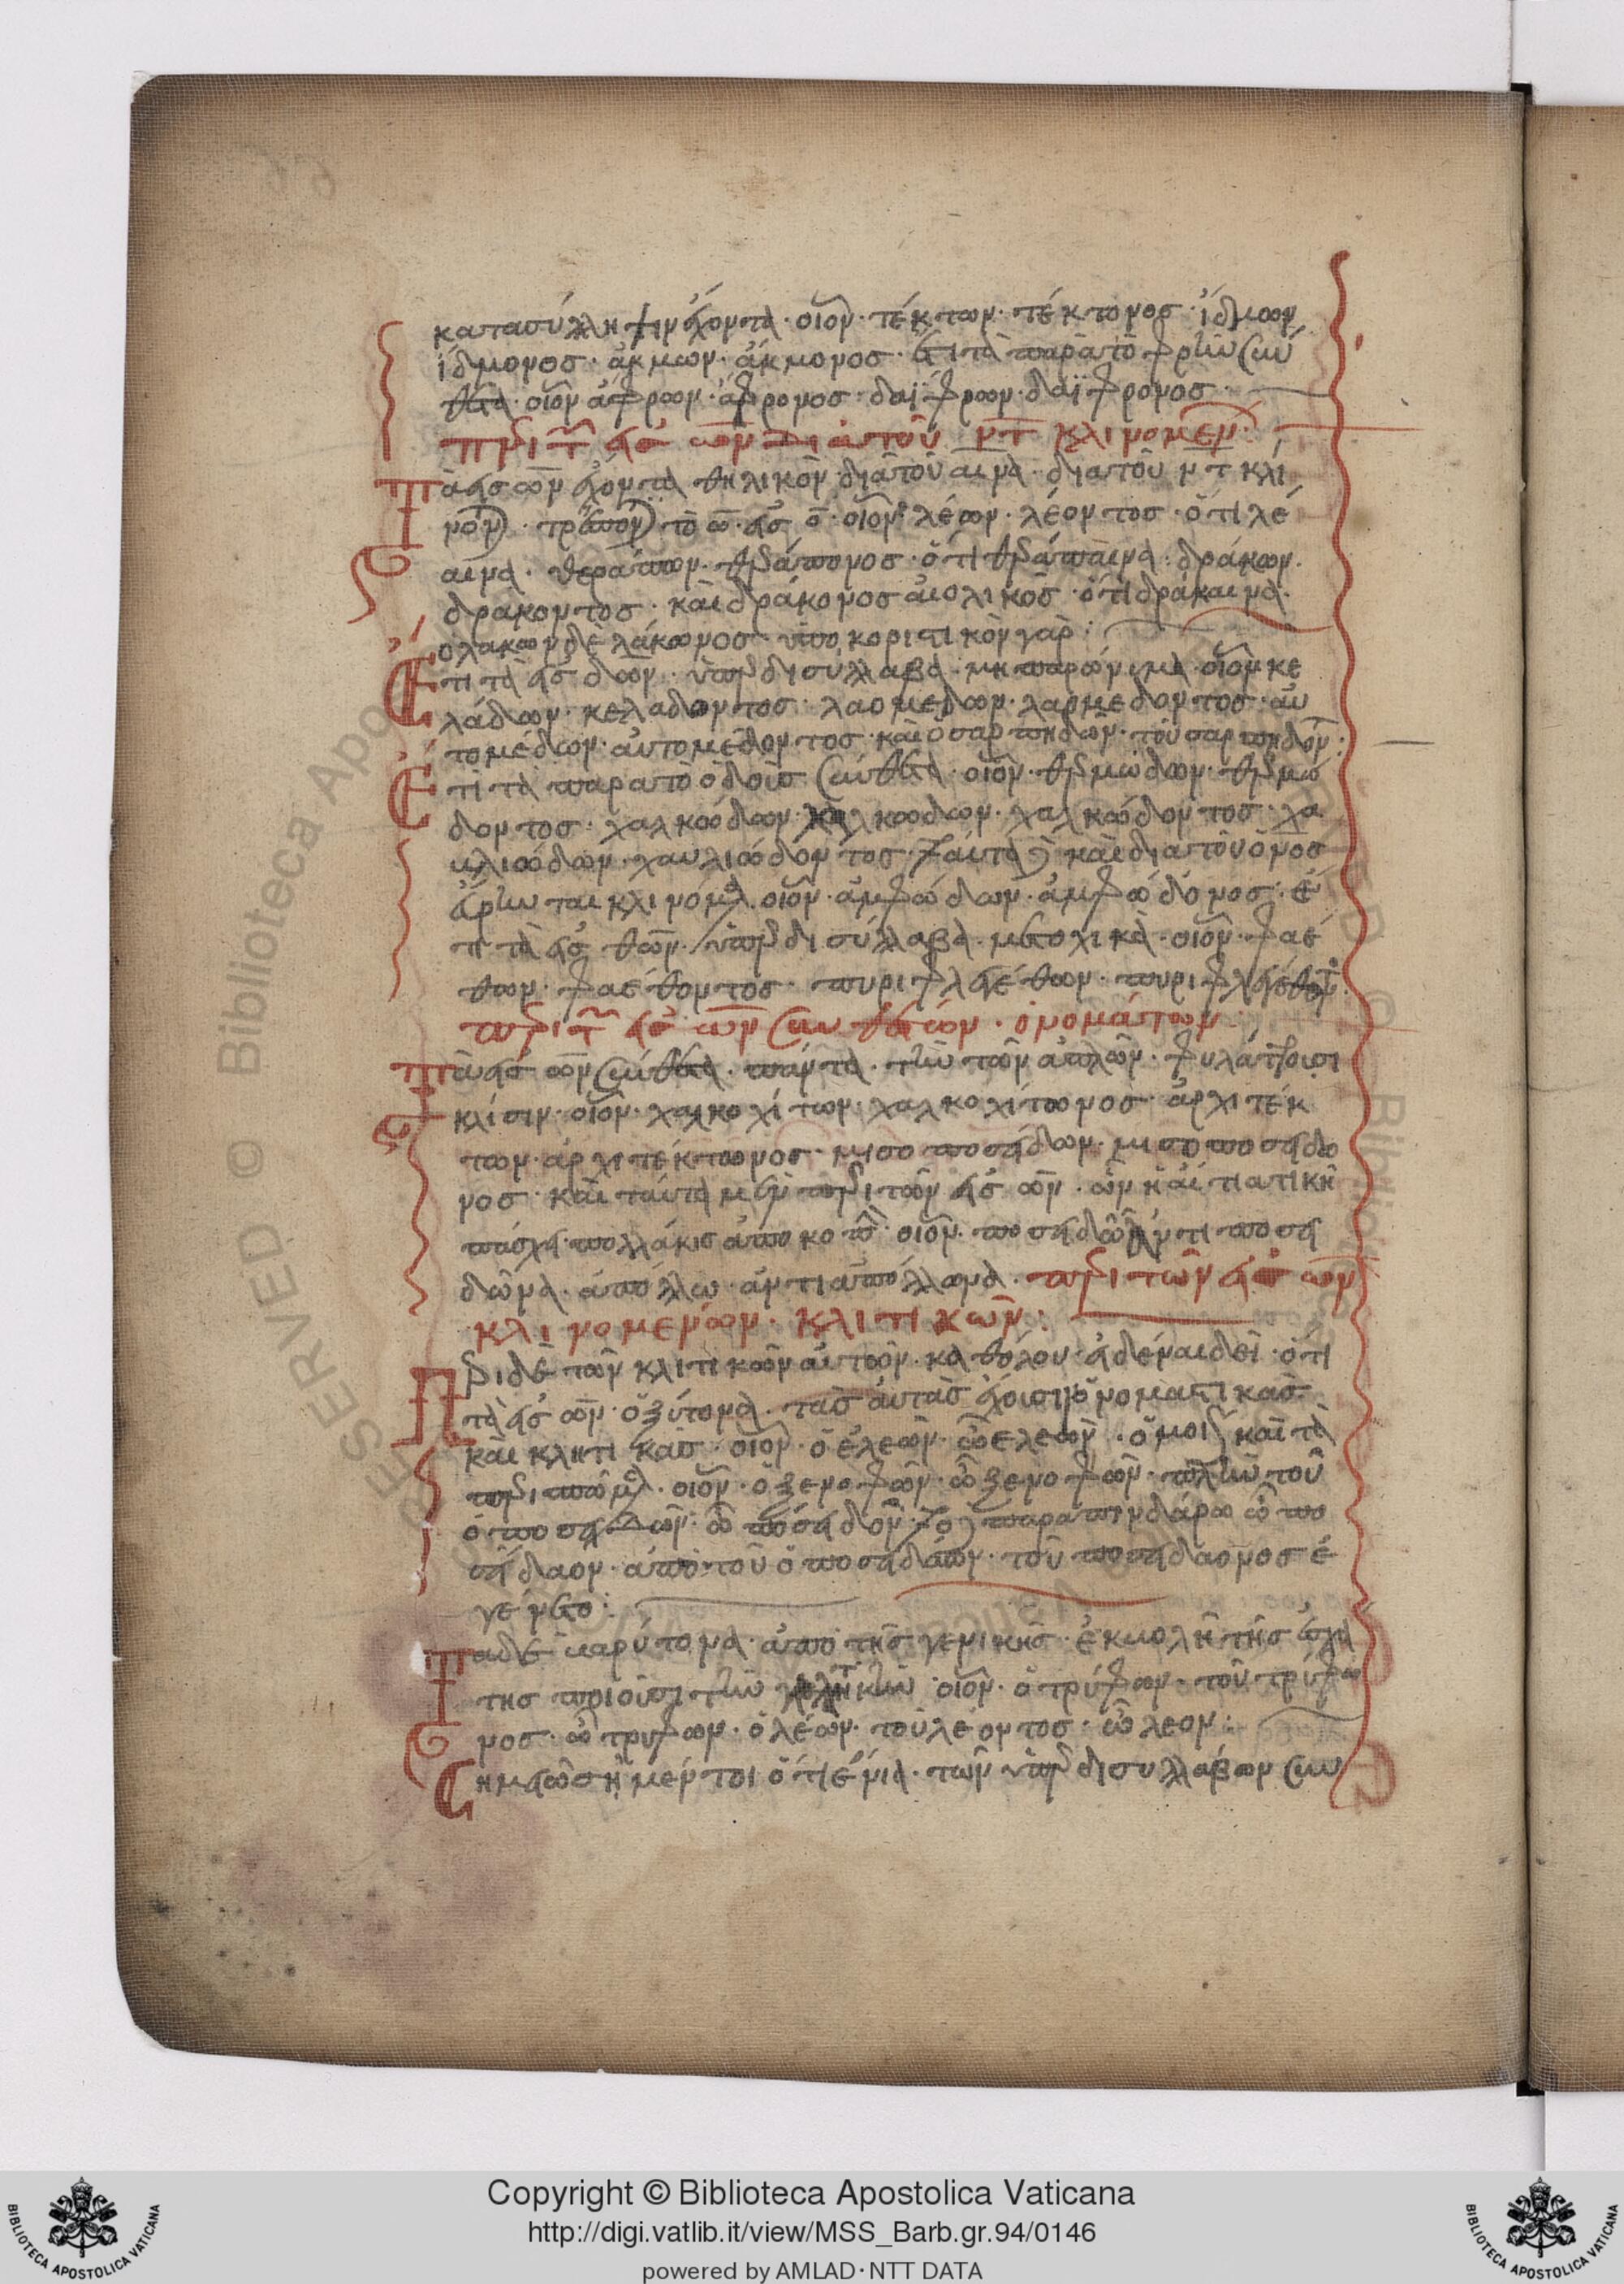 κατασύλληψιν ἔχοντα· οἷον· τέκτων· τέκτονος· ἴδμων
ἴδμονος· ἄκμων· ἄκμονος· ἔτι τὰ παρὰ τὸ φρὴν σύν
θετα· οἷον ἄφρων· ἄφρονος· δαΐφρων· δαΐφρονος·
περὶ τῶν εἰς ων διὰ τοῦ ντ κλινομένων
Τὰ εἰς ων ἔχοντα θηλικὸν διὰ τοῦ αινα· διὰ τοῦ ντ κλί
τὸ ω· εἰς ο· οἷον λέων· λέοντος· ὅτι λέ
αινα· θεράπων· θεράπονος· ὅτι θεράπαινα· δράκων·
δράκοντος· καὶ δράκονος αἰολικῶς· ὅτι δράκαινα·
ὁ λάκων δὲ λάκωνος· ὑποκοριστικὸν γὰρ:
Ἔτι τὰ εἰς δων· ὑπὲρ δισύλλαβα· μὴ παρώνυμα· οἷον κε
λάδων· κελάδοντος· λαομέδων· λαομέδοντος· αὐ
τομέδων· αὐτομέδοντος· καὶ ὁ σαρπηδών· τοῦ σαρπηδόν:
Ἔτι τὰ παρὰ τὸ ὀδοὺς σύνθετα· οἷον· θερμώδων· θερμώ
δοντος· χαλκώδων· χαλκώδοντος· χα
υλιόδων· χαυλιόδοντος· ταῦτα καὶ διὰ τοῦ ονος
εὕρηνται κλινόμενα· οἷον· ἀμφώδων· ἀμφώδονος· ἔ
τι τὰ εἰς θων· ὑπὲρ δισύλλαβα· μετοχικὰ· οἷον· φαέ
θων· φαέθοντος· πυριφλεγέθων· πυριφλεγέθοντ
περὶ τῶν εἰς ων συνθέτων· ὀνομάτων
Τὰ εἰς ων σύνθετα· πάντα· τὴν τῶν ἁπλῶν· φυλάττουσι
κλίσιν· οἷον· χαλκοχίτων· χαλκοχίτωνος· ἀρχιτέκ
των· ἀρχιτέκτονος· μισοποσειδῶν· μισοποσειδῶ
νος· καὶ ταῦτα μὲν περὶ τῶν εἰς ων· ὧν ἡ αἰτιατικὴ
πάσχει πολλάκις ἀποκοπὴν· οἷον· ποσειδῶ ἀντὶ ποσει
δῶνα· ἀπόλλω· ἀντὶ ἀπόλλωνα· περὶ τῶν εἰς ων
κλινομένων· κλιτικῶν:
Περὶ δὲ τῶν κλιτικῶν αὐτῶν· καθόλου εἰδέναι δεῖ· ὅτι
τὰ εἰς ων· ὀξύτονα· τὰς αὐτὰς ἔχουσιν ὀνομαστικὰς
καὶ κλητικάς· οἷον· ὁ ἐλεών· ὦ ἐλεών· ὁμοίως καὶ τὰ
περισπώμενα· οἷον· ὁ ξενοφῶν· ὦ ξενοφῶν· πλὴν τοῦ
ὁ ποσειδῶν· ὦ πόσειδον· τὸ παρὰ πινδάρω ὦ πο
σείδαον· ἀπὸ τοῦ ὁ ποσειδάων· τοῦ ποσειδάονος ἐ
γένετο:
Τὰ δὲ βαρύτονα· ἀπὸ τῆς γενικῆς· ἐκβολῆ τῆς ἐσχά
της ποιοῦσι τὴν κλητικὴν οἷον· ὁ τρύφων· τοῦ τρύφω
νος· ὦ τρύφων· ὁ λέων· τοῦ λέοντος· ὦ λέον:
Σημειῶσαι μέντοι ὅτι ἔνια· τῶν ὑπὲρ δισυλλάβων συν
Copyright © Biblioteca Apostolica Vaticana
http://digi.vatlib.it/view/MSS_Barb.gr.94/0146
powered by AMLAD·NTT DATA